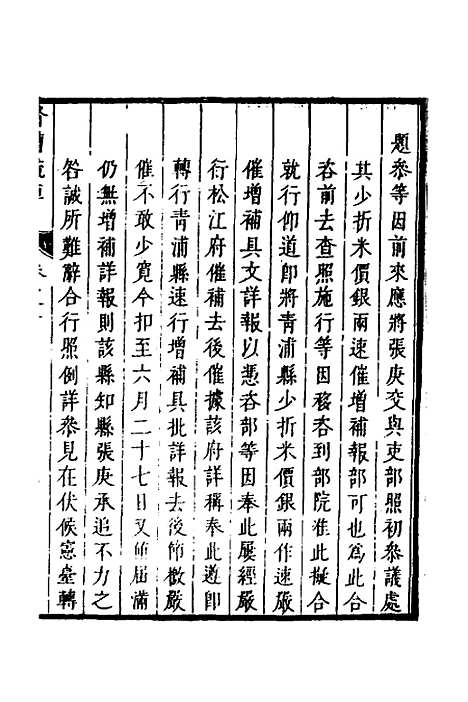 題叅等因前來應將張庚交與吏部照初叅議處
其少折米價銀兩速催增補報部可也為此合
咨前去查照施行等因移咨到部院准此擬合
就行仰道即將青浦縣少折米價銀兩作速嚴
催增補具文詳報以憑咨部等因奉此屢經嚴
行松江府催補去後催據該府詳稱奉此遵即
轉行青浦縣速行增補具批詳報去後節檄嚴
催不敢少寬今扣至六月二十七日又值屆滿
仍無增補詳報則該縣知縣張庚承追不力之
咎誠所難辭合行照例詳叅見在伏候憲臺轉